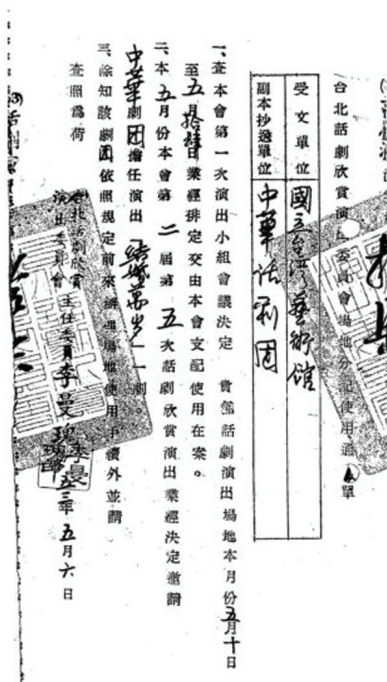 台北話劇欣賞演出委員會場地分配使用通單
受文單位 國立台灣藝術館
副本抄送單位 中華話劇團
一、查本會第一次演出小組會議決定 貴館話劇演出場地本月份五月十日
至五月拾肆日業經排定交由本會支配使用在案。
二、本五月份本會第二屆第五次話劇欣賞演出業經決定邀請
中華劇團擔任演出 一劇。
三、除知該劇團依照規定前來辦理場地使用手續外並請
查照為荷
台北話劇欣賞
演出委員會 主任委員李曼瑰
三年五月六日